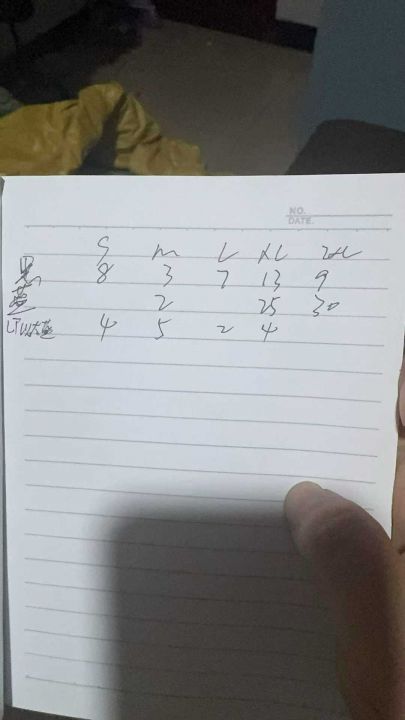 NO.
DATE.
S M L XL 2XL
黑 8 3 7 13 9
蓝 2 25 30
4 5 2 4